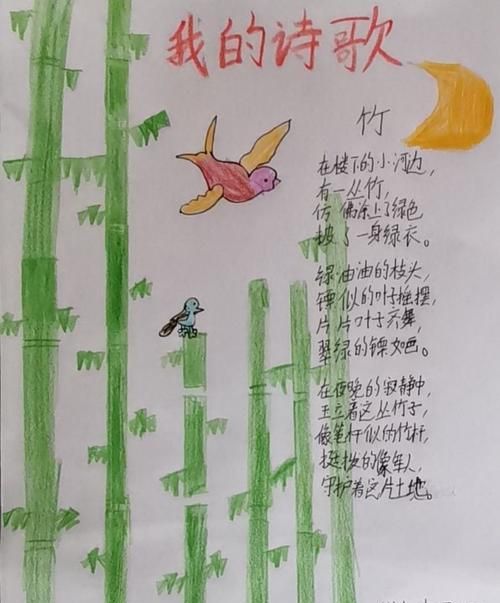 我的诗歌
竹
在楼下的小河边，
有一丛竹，
仿佛涂上了绿色
披了一身绿衣。
绿油油的枝头，
镖似的叶子摇摆，
片片叶子齐舞，
翠绿的镖如画。
在夜晚的寂静中，
王立着这丛竹子，
像笔杆似的竹杆，
挺拔的像军人，
守护着这片土地。